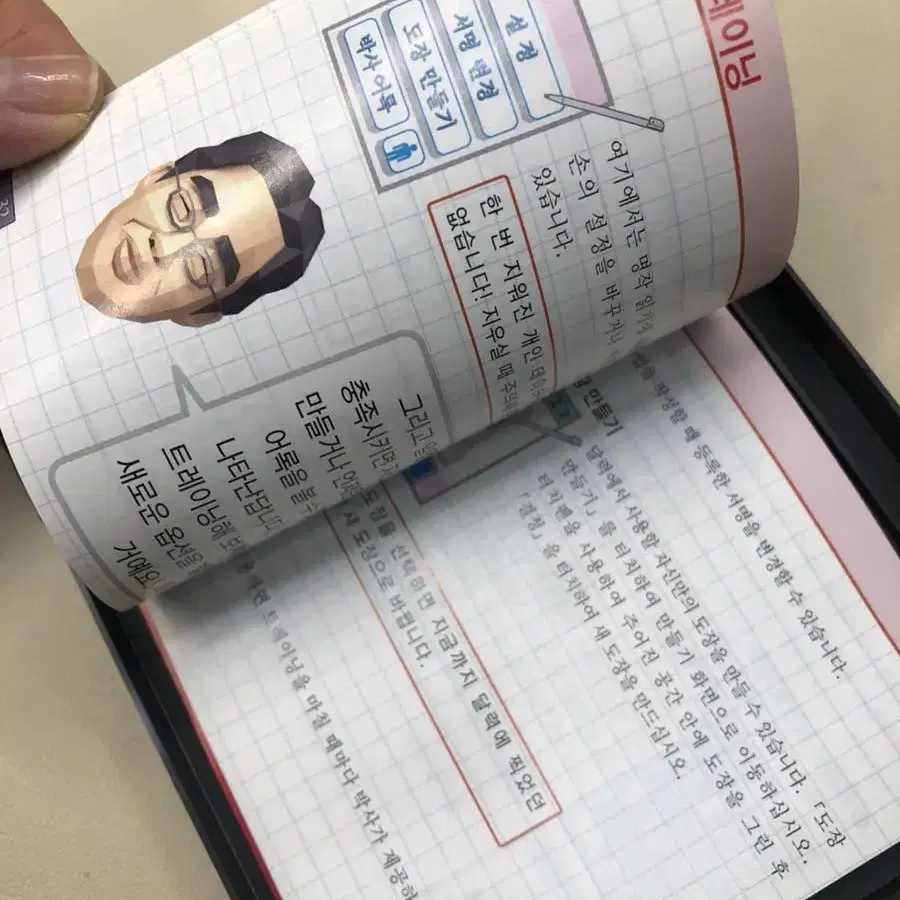 레이닝
설 정
서명 변경
도장 만들기
박사 어록
여기에서는 명작 읽기
손의 설정을 바꾸거나
있습니다.
한 번 지워진 개인 데이
없습니다! 지우실 때 주의
그리고
충족시키면
만들거나
어록을
나타난답니다
트레이닝해
새로운 옵션을
거예요
32
작성할 때 등록한 서명을 변경할 수 있습니다.
만들기
달력에서 사용할 자신만의 도장을 만들 수 있습니다. 「도장
만들기」을 터치하여 만들기 화면으로 이동하십시오.
터치펜을 사용하여 주어진 공간 안에 도장을 그린 후
「결정」을 터치하여 새 도장을 만드십시오.
도장을 선택하면 지금까지 달력에 찍었던
새 도장으로 바뀝니다.
트레이닝을 마칠 때마다 박사가 제공하